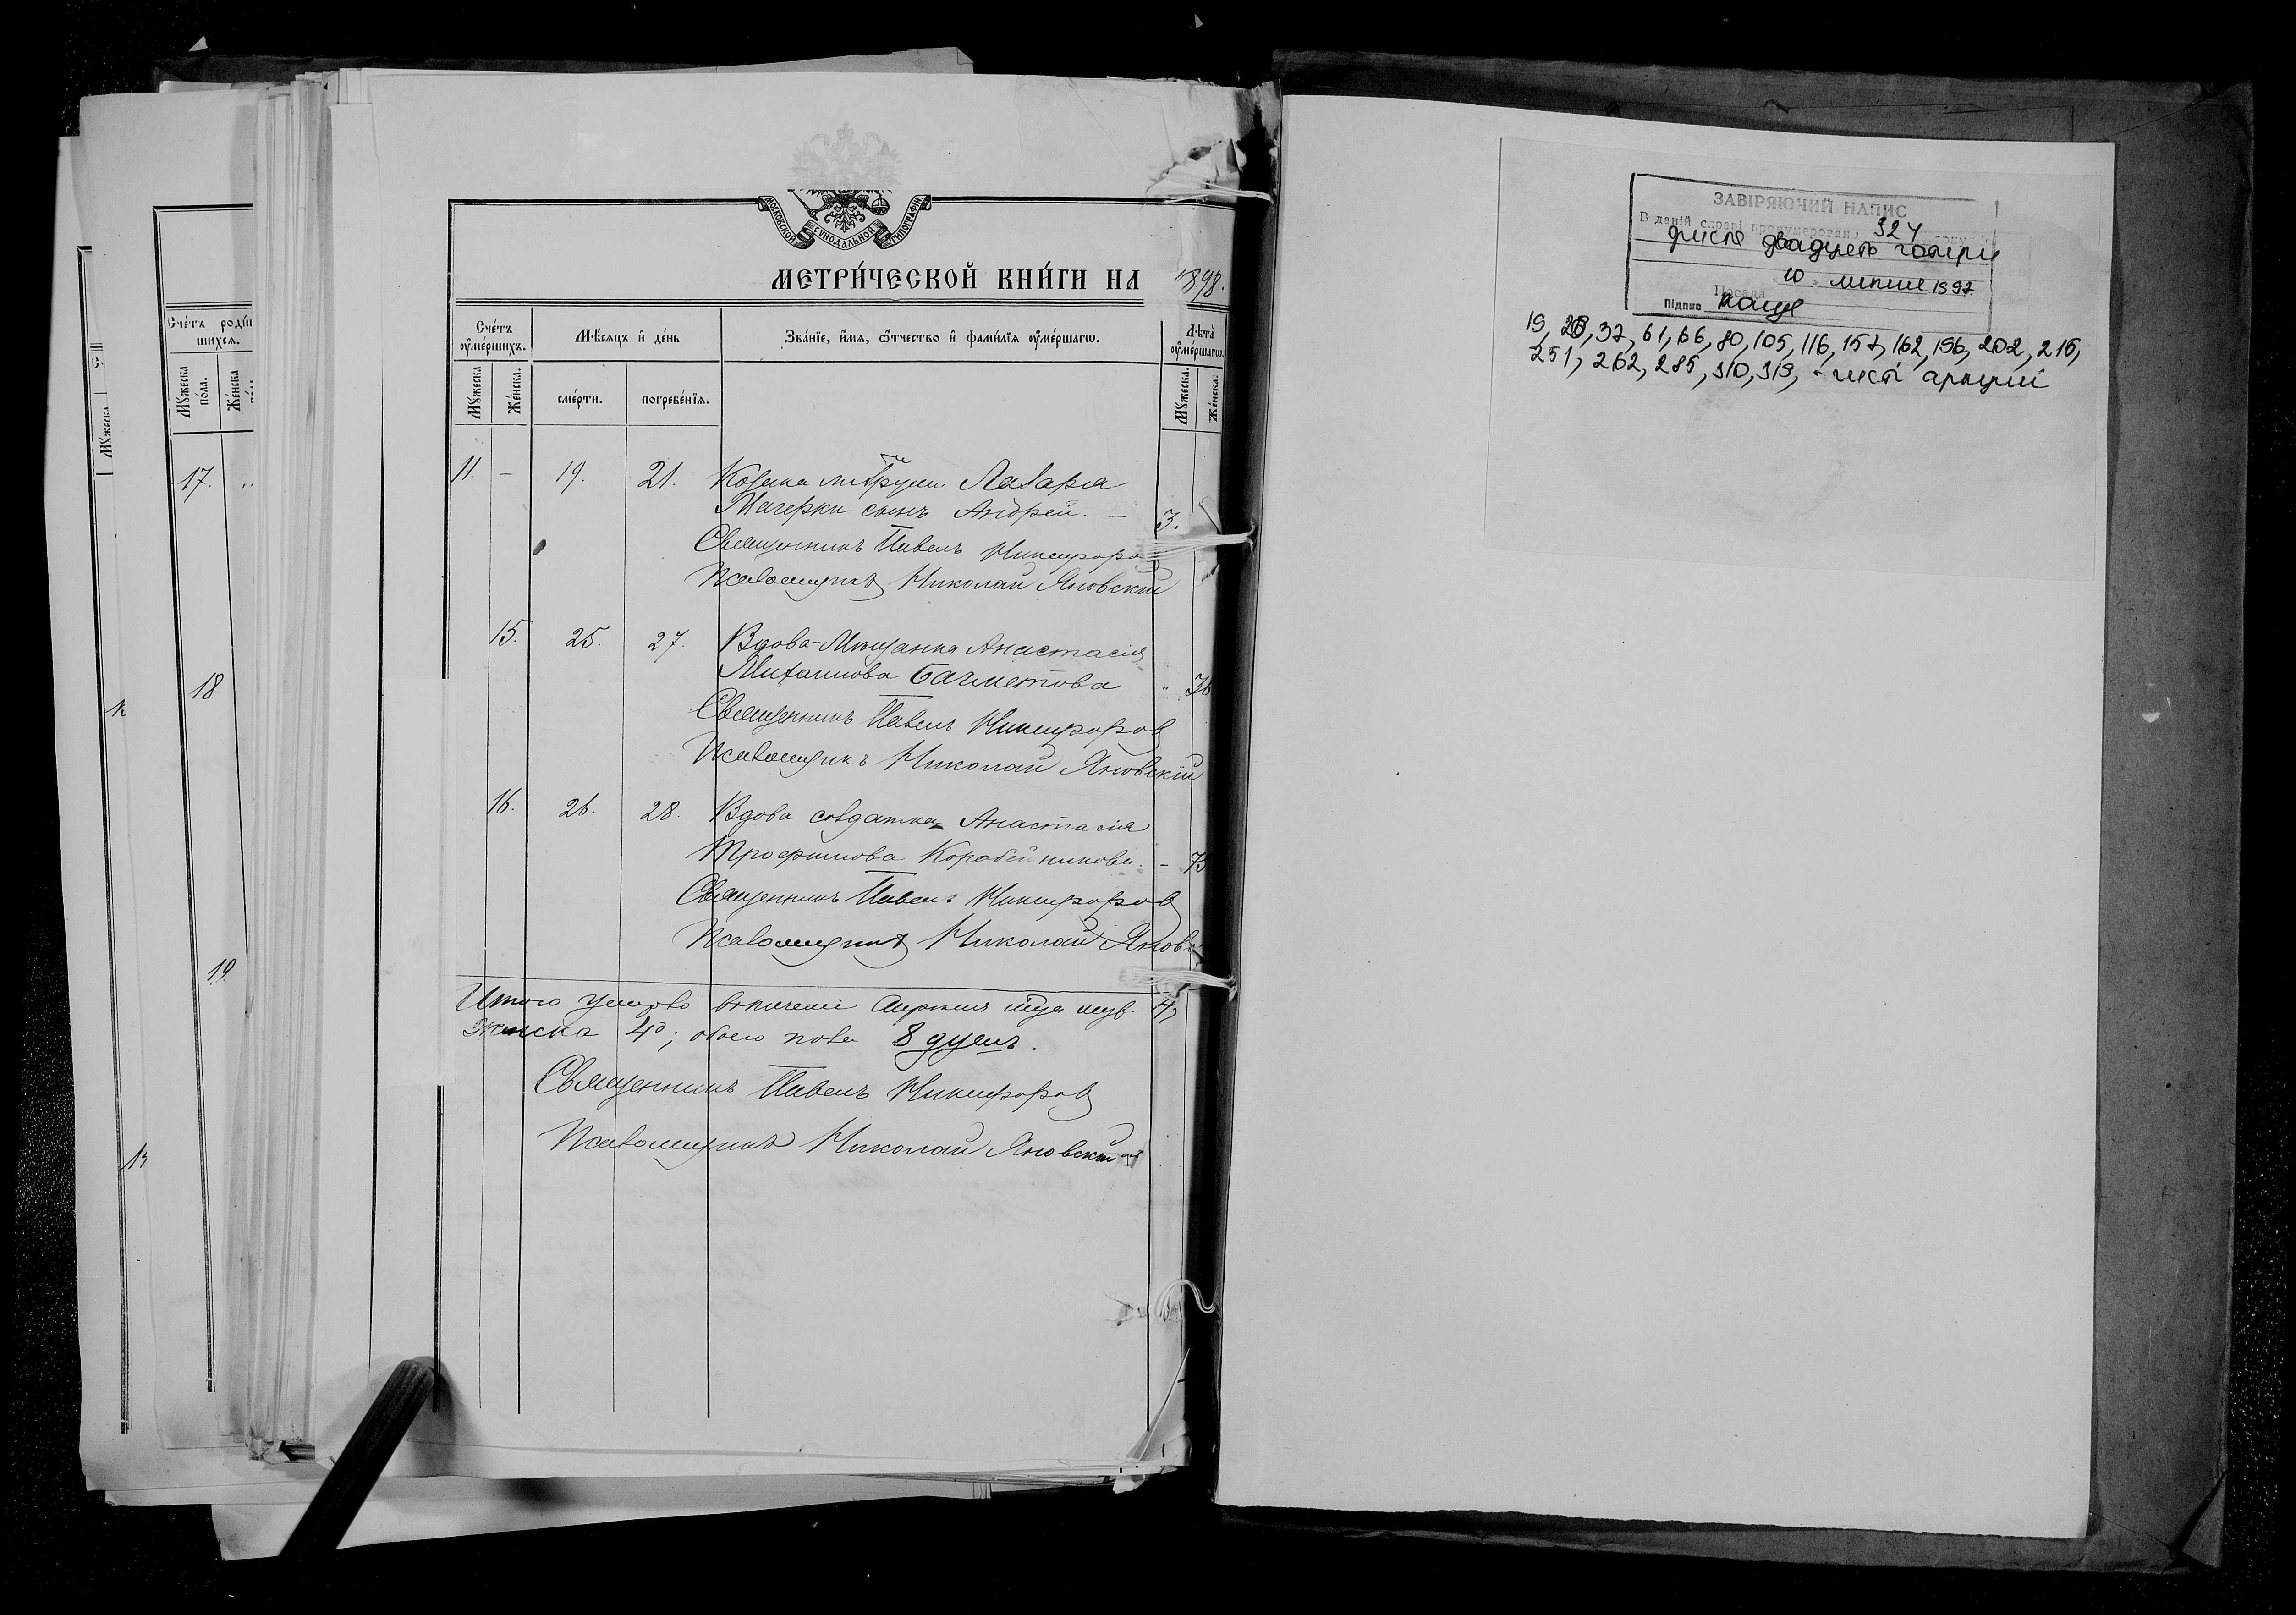 МОСКОВСКОЙ СѴНОДАЛЬНОЙ ТИПОГРАФІИ
МЕТРИ́ЧЕСКОЙ КНИ́ГИ НА 1898.
Сче́тъ оумéршихъ.
Мѣ́сяцъ и҆ де́нь
Зва́нїе, и҆́мя, ѻ҆́тчество и҆ фами́лїя оумéршагѡ.
Лѣ́та оумéршагѡ.
Мꙋ́жеска
Же́нска.
сме́рти.
погребе́нїя.
Мꙋ́жеска.
Же́нска.
11. – 19. 21. Лазаря
сынъ Андрей. – 3.
Священникъ Павелъ Никифоровъ
Псаломщикъ Николай Яновскій
15. 25. 27. Вдова-Мѣщанка Анастасія
Михаилова Бахметова " 76
Священникъ Павелъ Никифоровъ
Псаломщикъ Николай Яновскій
16. 26. 28. Вдова солдатка Анастасія
Трофимова Коробейникова. – 73
Священникъ Павелъ Никифоровъ
Псаломщикъ Николай Яновс
Итого умерло въ теченіи муж. 4,
женска 4; обоего пола 8 душъ.
Священникъ Павелъ Никифоровъ
Псаломщикъ Николай Яновскій
Сче́тъ роди́
шихся.
Мꙋ́жеска по́ла.
Же́нска
Мꙋ́жеска
17. "
18
19
ЗАВІРЯЮЧИЙ НАПИС
В даній справі пронумеровано 324
триста двадцять чотири
10 липня 1997
Посада
Підпис
19, 28, 37, 61, 66, 80, 105, 116, 157, 162, 196, 202, 215,
251, 262, 285, 310, 319, - чисті аркуші